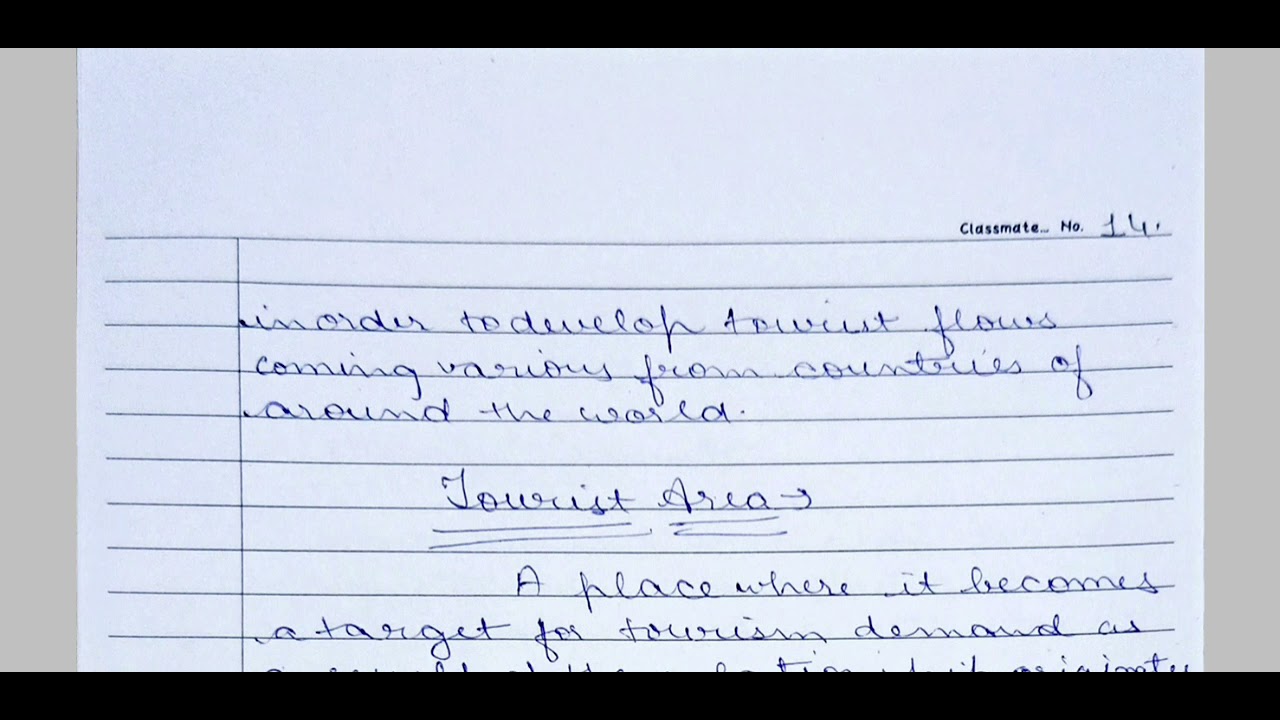 Classmate... No. 14.
in order to develop tourist flows
coming various from countries of
around the world.
Tourist Area →
A place where it becomes
a target for tourism demand as
a result of the